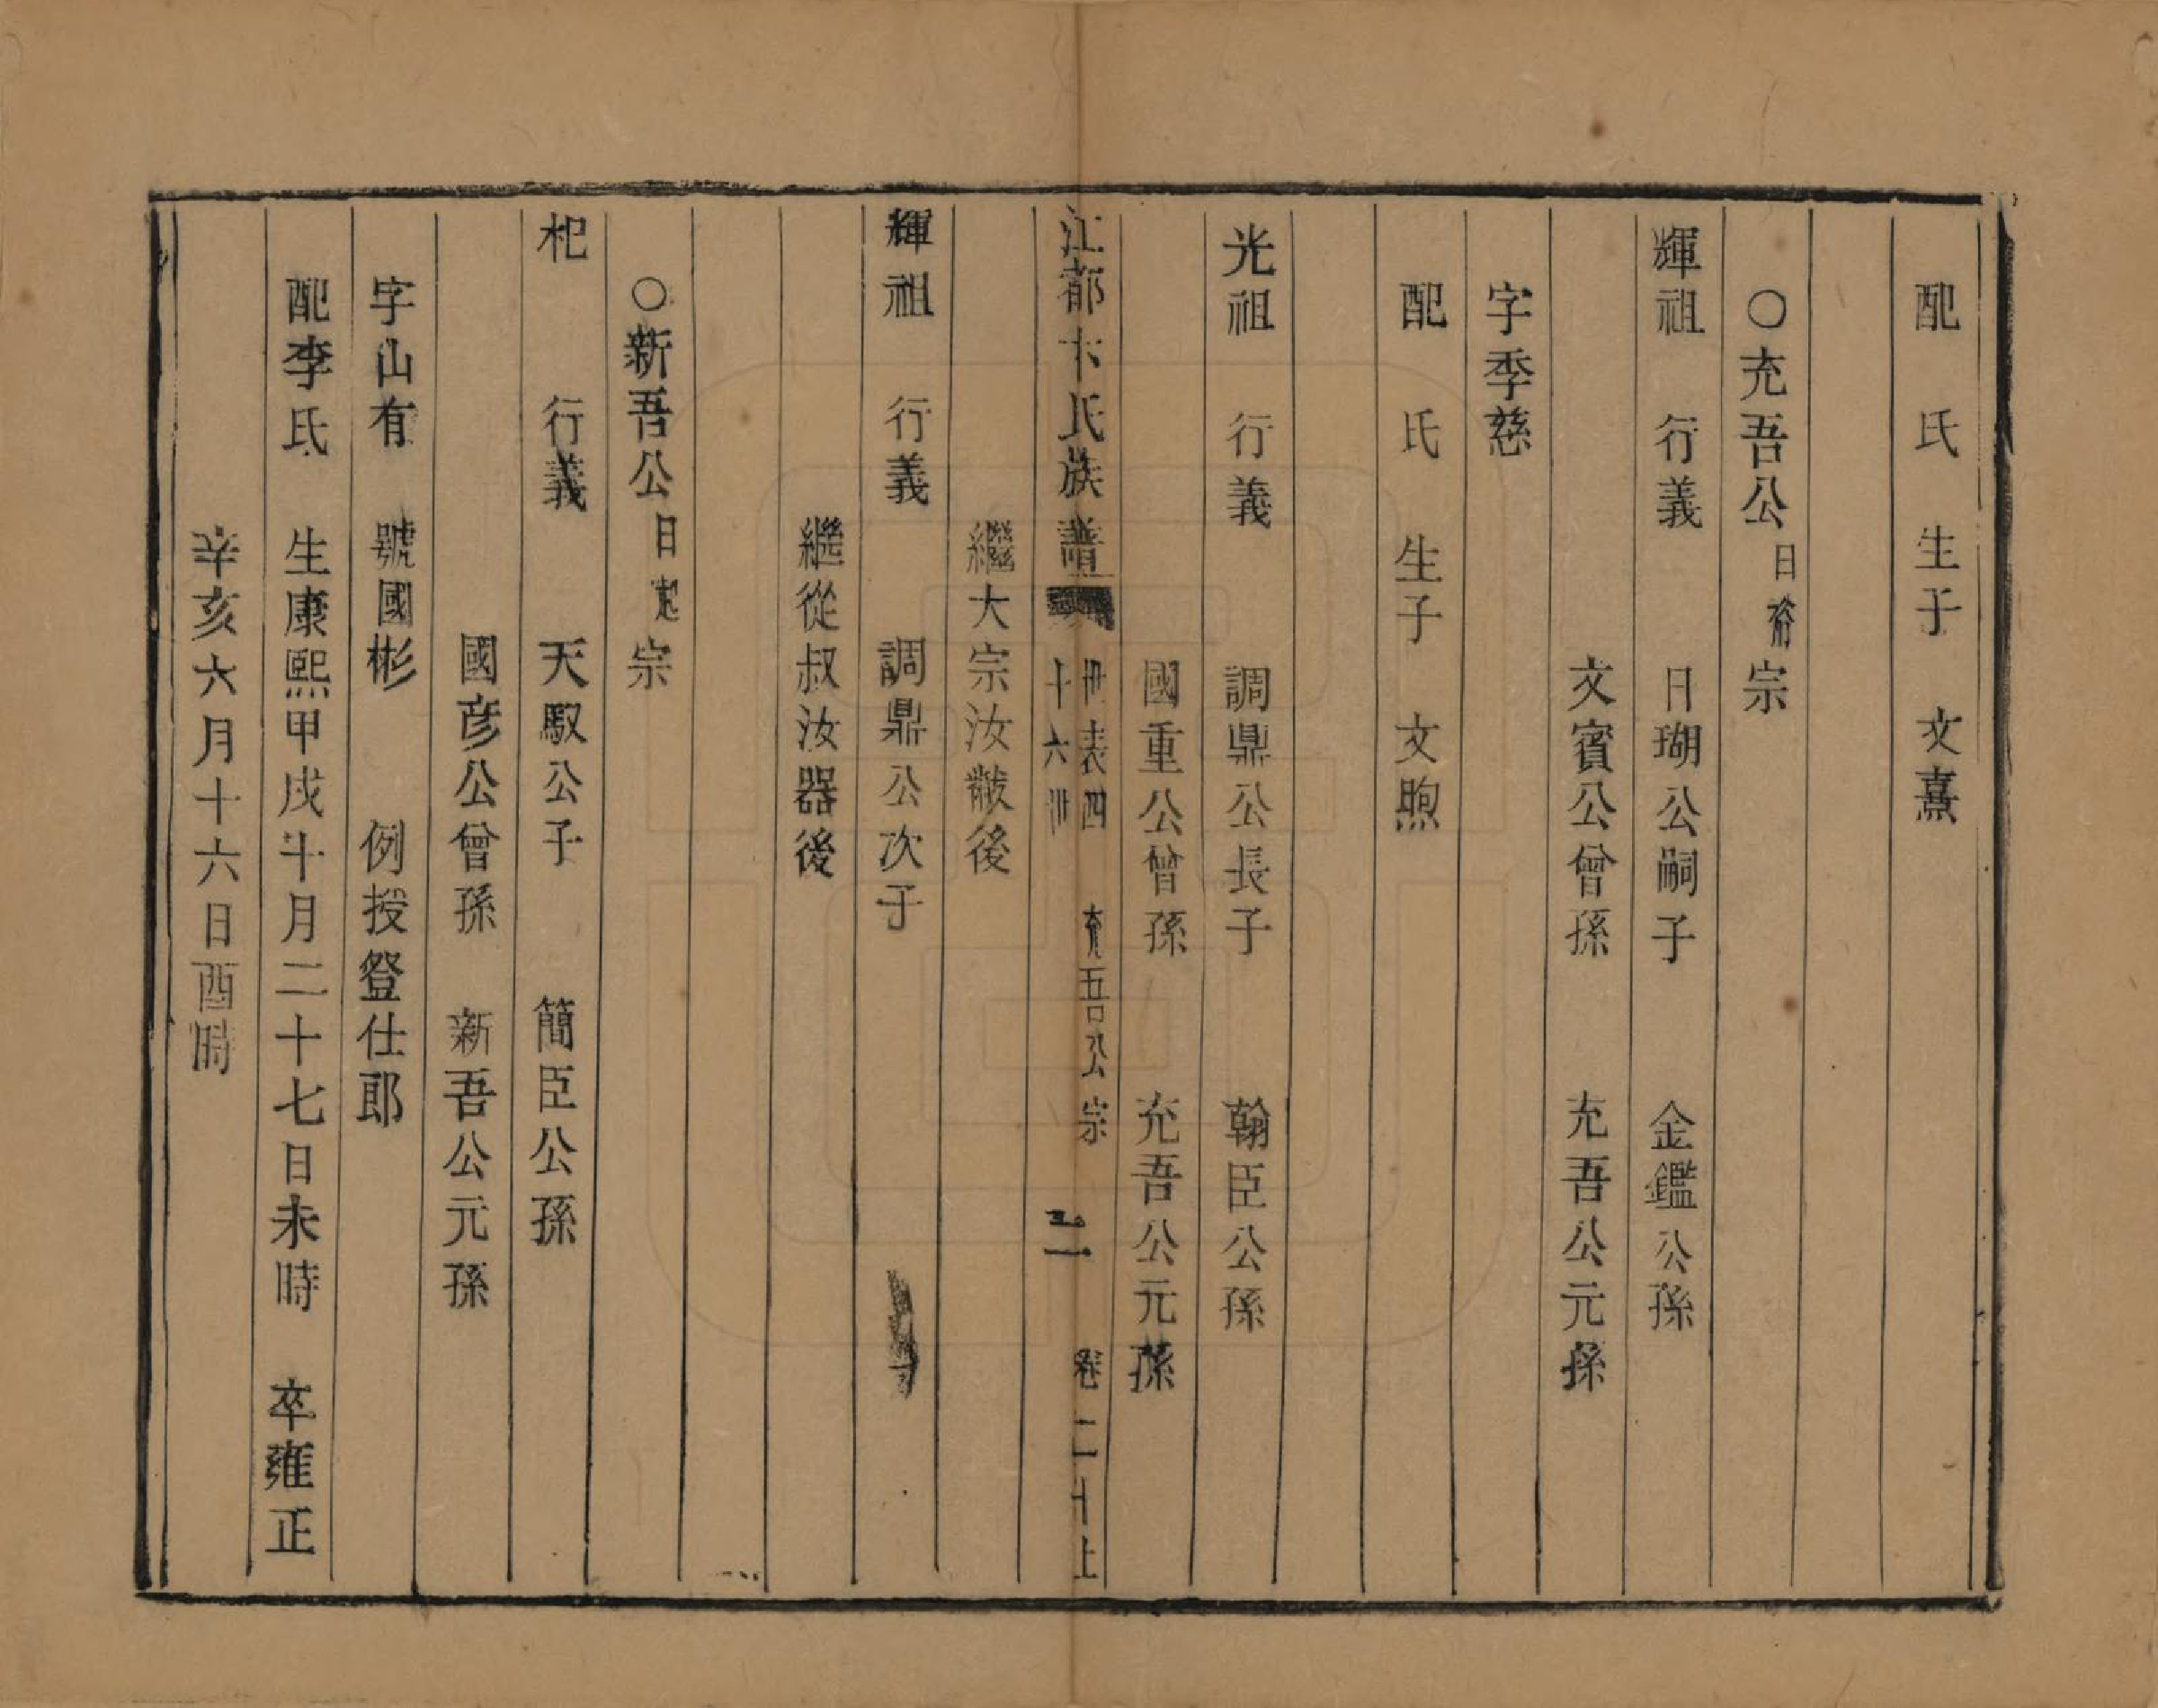 配　氏　生子　文熹
○充吾公日㑹宗
輝祖　行義　日瑚公嗣子　金鑑公孫
文賓公曾孫　充吾公元孫
字季慈
配　氏　生子　文煦
光祖　行義　調鼎公長子　翰臣公孫
國重公曾孫　充吾公元孫
江都卞氏族譜　世表四　十六世　充吾公宗　卷二十上
繼大宗汝黻後
輝祖　行義　調鼎公次子
繼從叔汝器後
○新吾公日起宗
杞　行義　天馭公子　簡臣公孫
國彦公曾孫　新吾公元孫
字山有　號國彬　例授登仕郎
配李氏　生康熙甲戌十月二十七日未時　卒雍正
辛亥六月十六日酉時